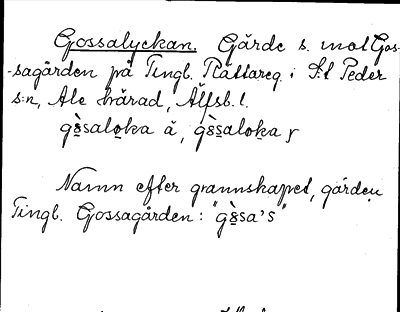 Gossalyckan. Gärde s. mot Gos-
-sagården på Tingb. Plattareg. i S:t Peder
s:n, Ale härad, Älfsb. l.
gòsalo̱ka å, gòsalo̱ka y
Namn efter grannskapet, gården
Tingb. Gossagården: "gòsa's"